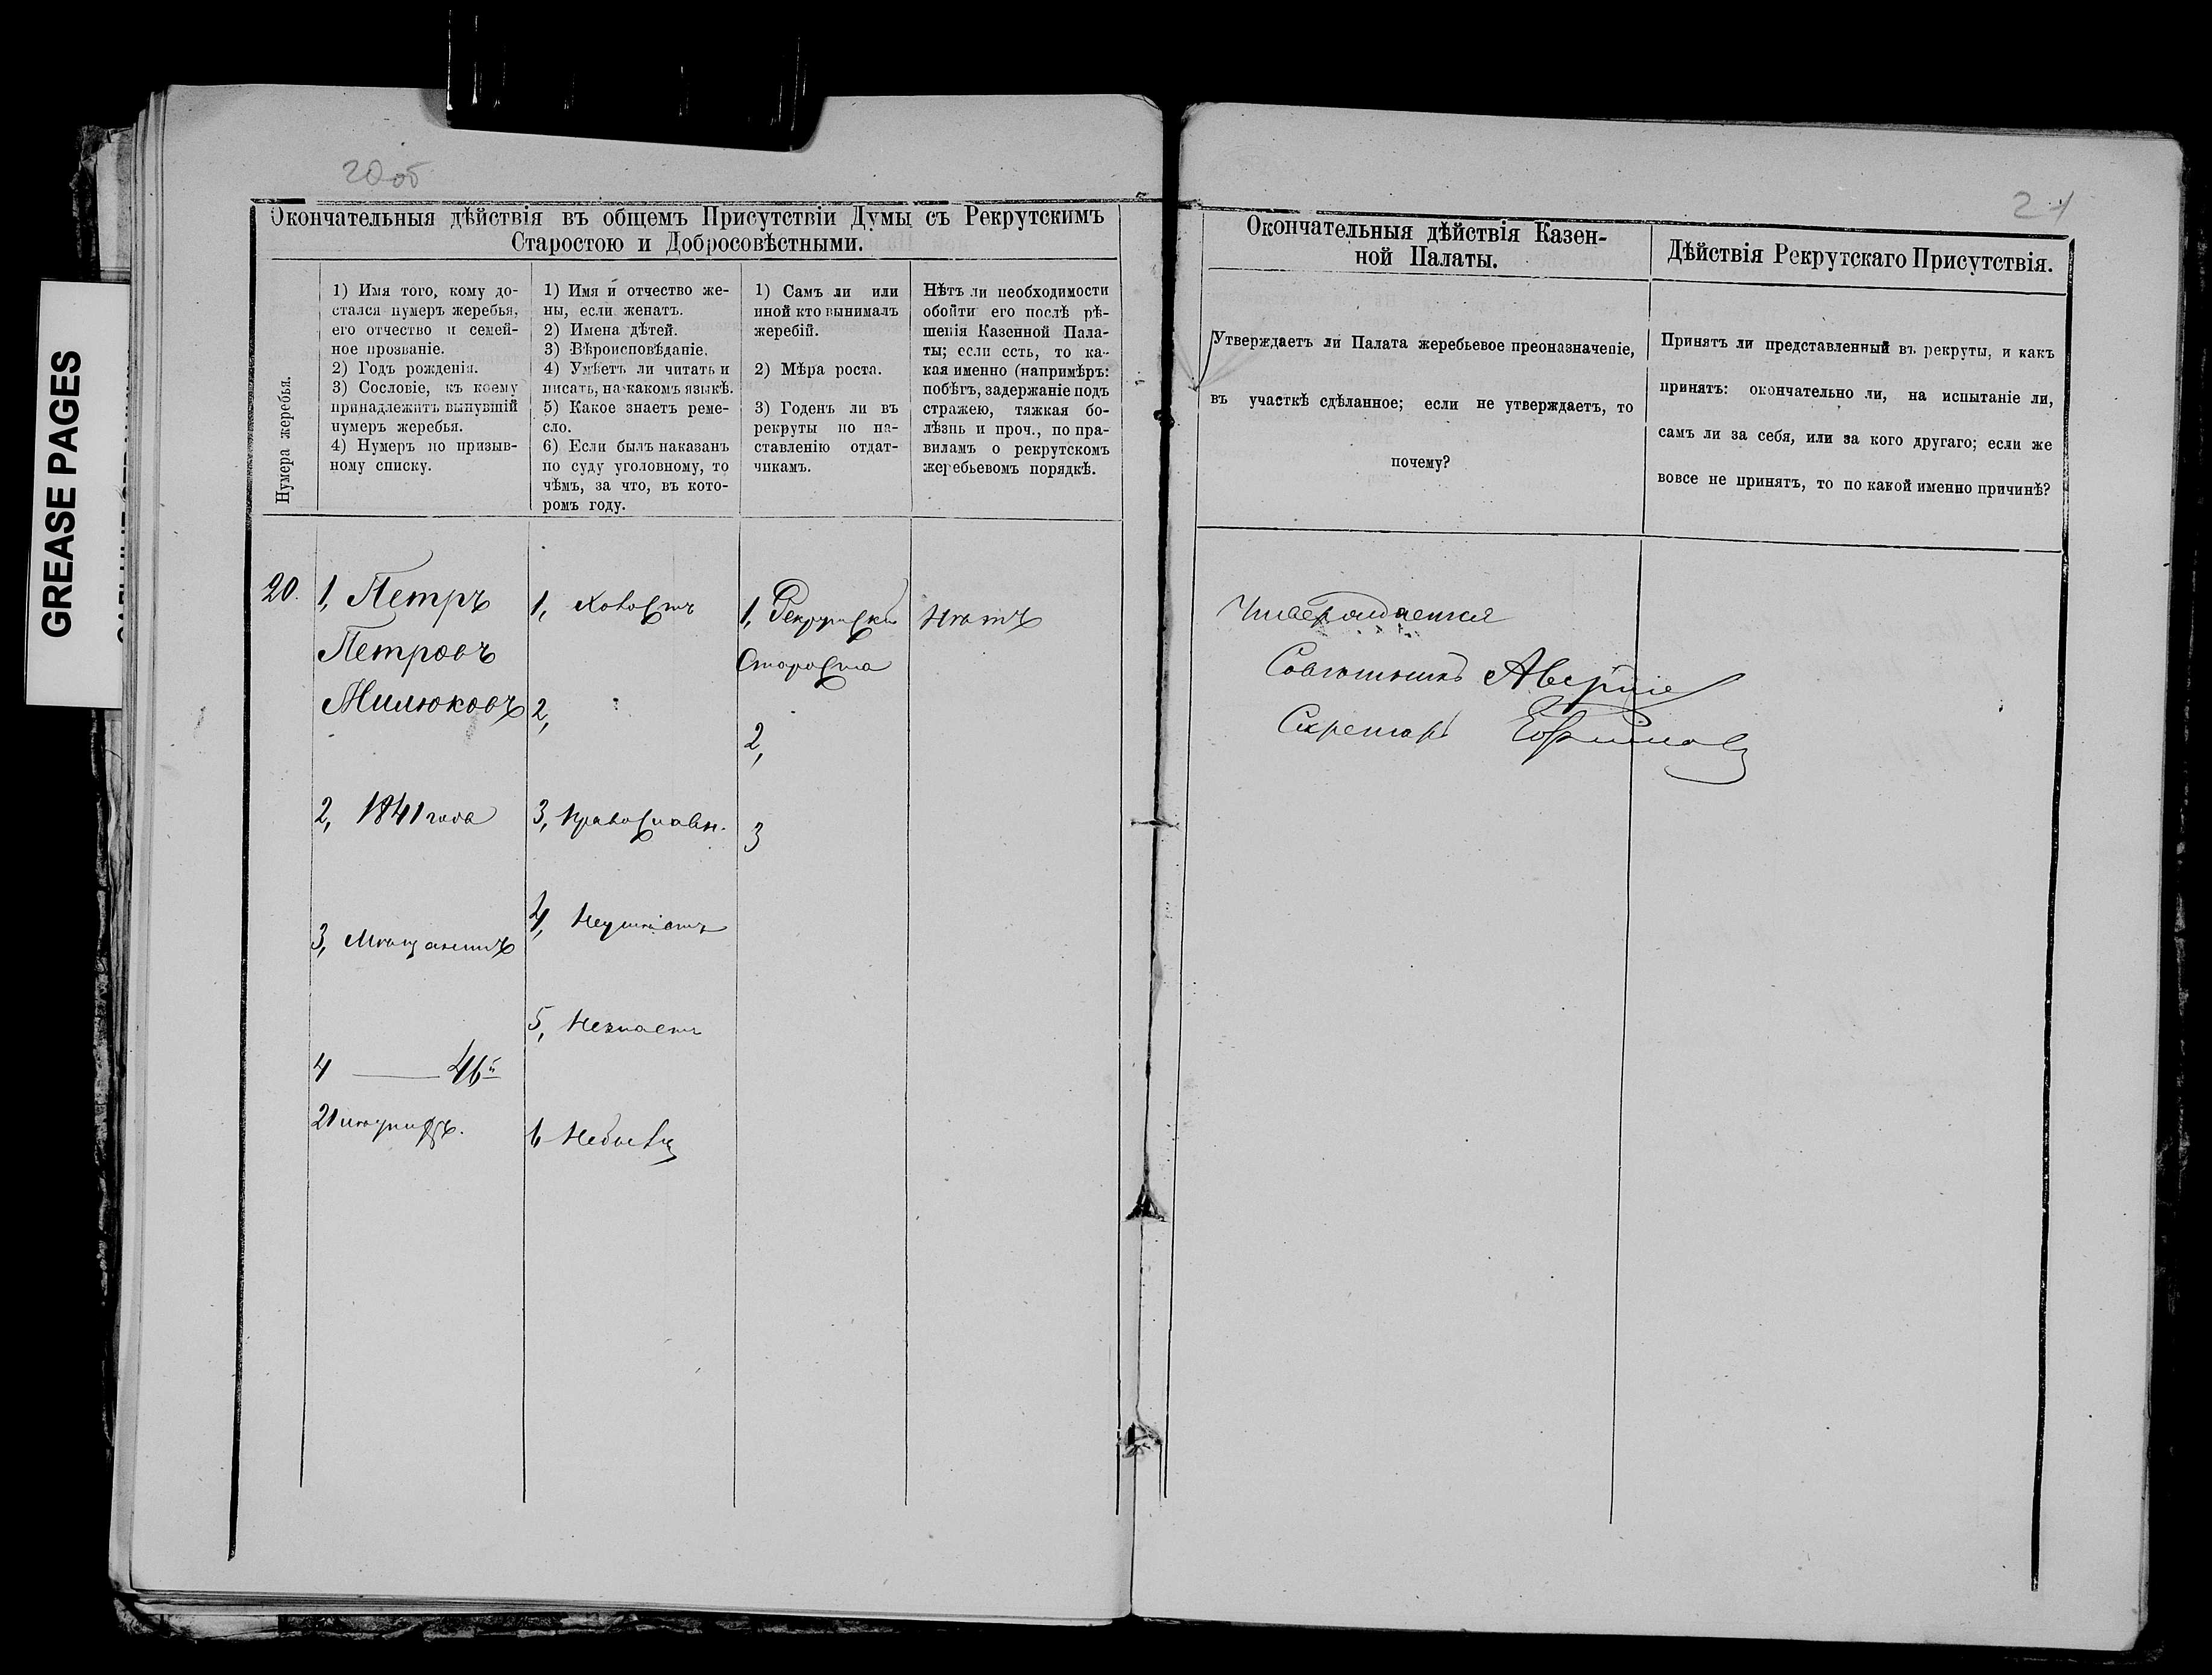 GREASE PAGES
20 об
21
Окончательныя дѣйствія въ общемъ Присутствіи Думы съ Рекрутскимъ
Старостою и Добросовѣстными.
Нумера жеребья.
1) Имя того, кому до-
стался нумеръ жеребья,
его отчество и семей-
ное прозваніе.
2) Годъ рожденія.
3) Сословіе, къ коему
принадлежитъ вынувшій
нумеръ жеребья.
4) Нумеръ по призыв-
ному списку.
1) Имя и отчество же-
ны, если женатъ.
2) Имена дѣтей.
3) Вѣроисповѣданіе.
4) Умѣетъ ли читать и
писать, на какомъ языкѣ.
5) Какое знаетъ реме-
сло.
6) Если былъ наказанъ
по суду уголовному, то
чѣмъ, за что, въ кото-
ромъ году.
1) Самъ ли или
иной кто вынималъ
жеребій.
2) Мѣра роста.
3) Годенъ ли въ
рекруты по на-
ставленію отдат-
чикамъ.
Нѣтъ ли необходимости
обойти его послѣ рѣ-
шенія Казенной Пала-
ты; если есть, то ка-
кая именно (напримѣръ:
побѣгъ, задержаніе подъ
стражею, тяжкая бо-
лѣзнь и проч., по пра-
виламъ о рекрутскомъ
жеребьевомъ порядкѣ.
20.
1, Петръ
Петровъ
Милюковъ
2, 1841 года
3, Мѣщанинъ
4 — 46й
1, Холостъ
2,
3, Православн.
4, Неумѣетъ
5, Незнаетъ
6 Небылъ
1, Рекрутскій
Староста
2,
3
Нѣтъ
Окончательныя дѣйствія Казен-
ной Палаты.
Утверждаетъ ли Палата жеребьевое преоназначеніе,
въ участкѣ сдѣланное; если не утверждаетъ, то
почему?
Дѣйствія Рекрутскаго Присутствія.
Принятъ ли представленный въ рекруты, и какъ
принятъ: окончательно ли, на испытаніе ли,
самъ ли за себя, или за кого другаго; если же
вовсе не принятъ, то по какой именно причинѣ?
Утверждается
Совѣтникъ
Секретарь Ефимовъ